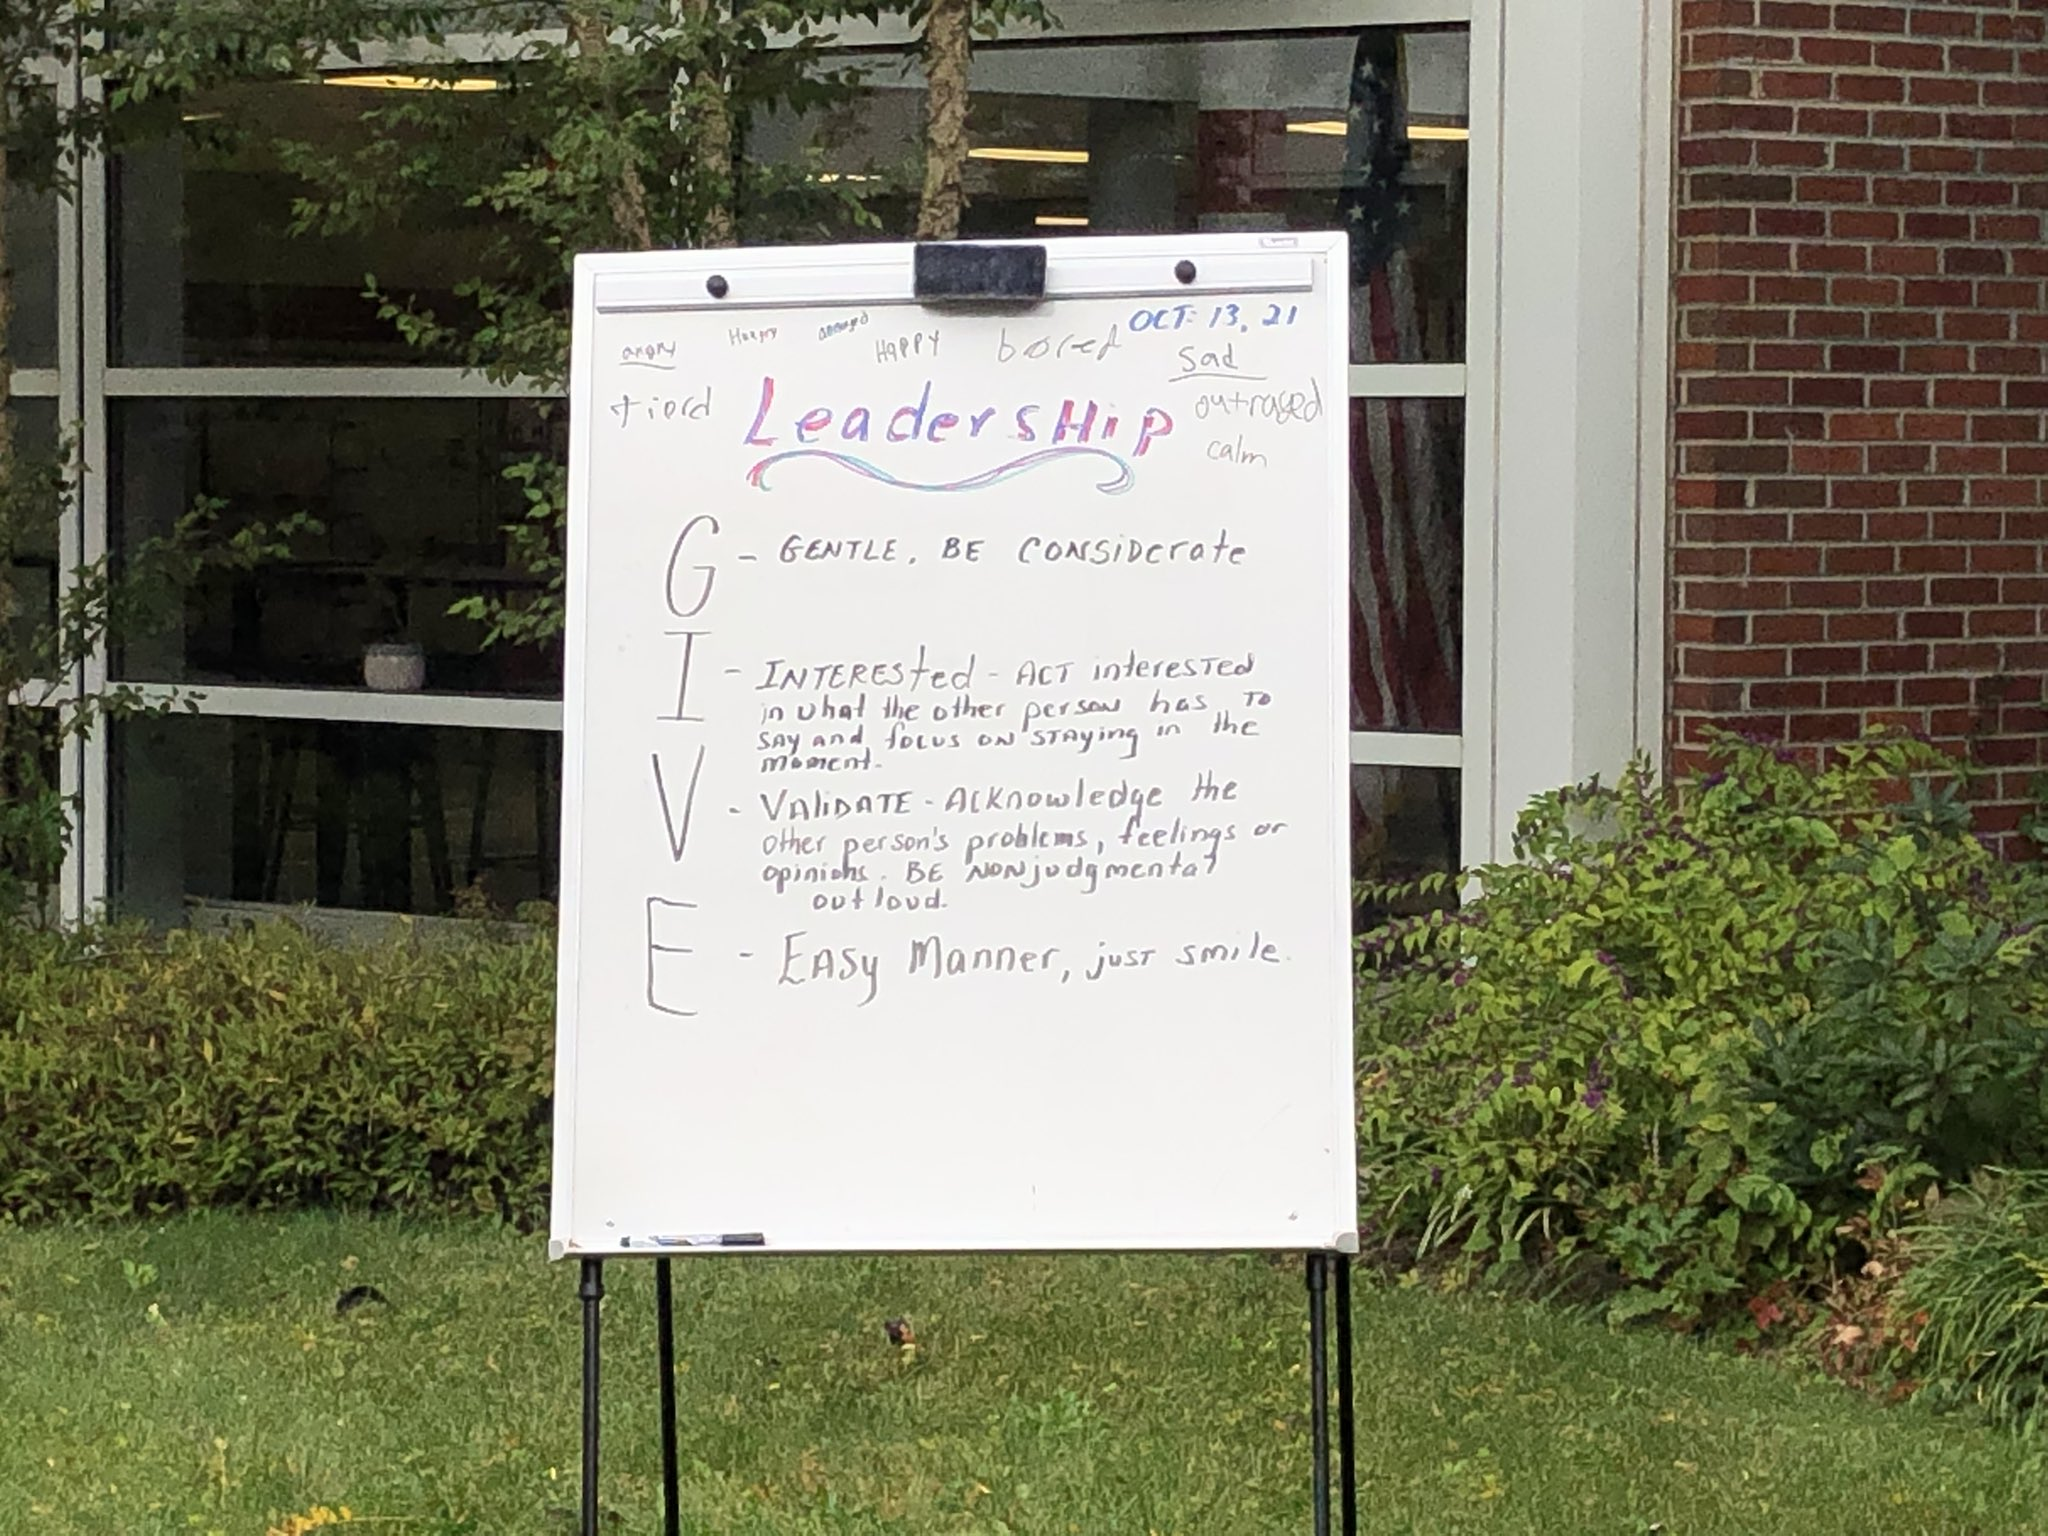 OCT. 13, 21
angry Hungry HAPPY bored sad
tiord LeadersHip outraged
calm
G - GENTLE, BE CONSIDerate
I - INTERESted - ACT interested
in what the other person has TO
SAY and focus ON STAYing in the
moment.
V - VALIDATE - ACKnowledge the
other person's problems, feelings or
opinions. BE NONjudgmental
out loud.
E - EASy Manner, just smile.